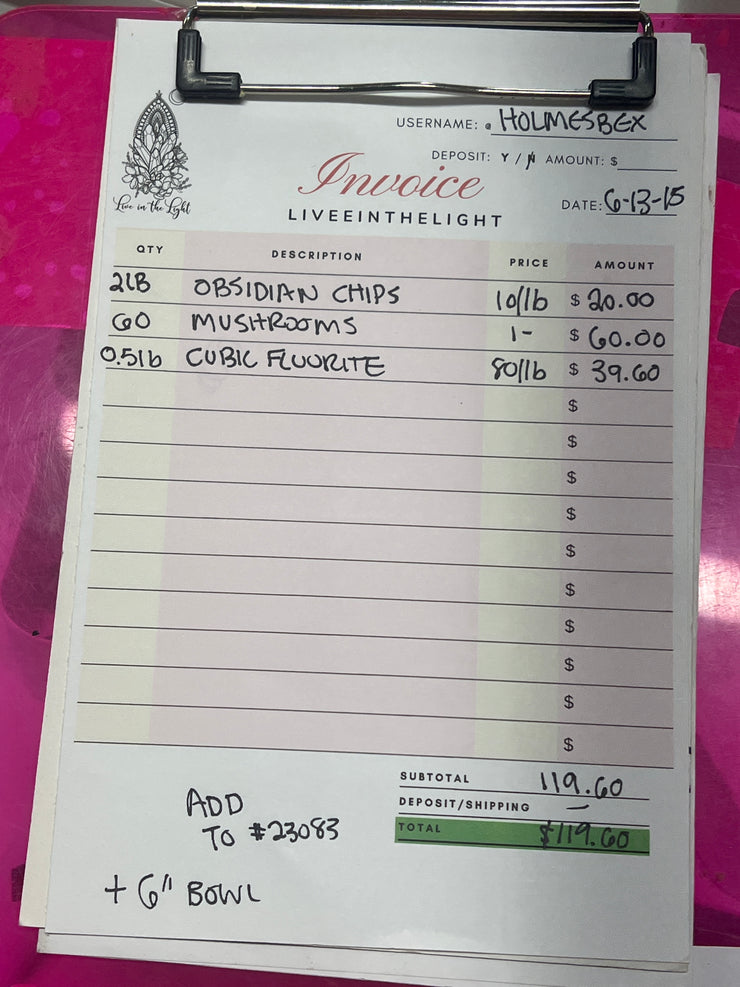 USERNAME: @HOLMESBEX
DEPOSIT: Y / N AMOUNT: $
Live in the Light
Invoice
LIVEEINTHELIGHT
DATE: 6-13-15
QTY DESCRIPTION PRICE AMOUNT
2LB OBSIDIAN CHIPS 10/lb $ 20.00
60 MUSHROOMS 1- $ 60.00
0.5lb CUBIC FLUORITE 80/lb $ 39.60
$
$
$
$
$
$
$
$
$
$
SUBTOTAL 119.60
DEPOSIT/SHIPPING —
TOTAL $119.60
ADD
TO #23083
+ 6" BOWL